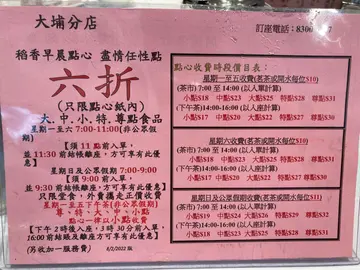 大埔分店
訂座電話：8300
稻香早晨點心 盡情任性點
六折
(只限點心紙內)
大、中、小、特、尊點食品
星期一至六 7:00-11:00(非公眾假期)
【須 11 點前入單，
並 11:30 前結帳離座，方可享有此優惠】
星期日及公眾假期 7:00-9:00
【須 9:00 前入單，
並 9:30 前結帳離座，方可享有此優惠】
只限堂食，外賣攜走正價收費
星期一至五下午茶(非公眾假期)
尊、特、大、中、小點
點心一律以小點收費
【下午 2 時後入座，3 時 30 分前入單，
16:00 前結帳及離座方可享有此優惠】
(另收加一服務費)
8/2/2022 版
點心收費時段價目表：
星期一至五收費(茗茶或開水每位$10)
(茶市) 7:00 至 14:00 (以入單計算)
小點$18 中點$23 大點$25 特點$28 尊點$31
(下午茶)14:00-16:00 (以入單計算)
小點$17 中點$20 大點$22 特點$27 尊點$30
星期六收費(茗茶或開水每位$10)
(茶市) 7:00 至 14:00 (以入單計算)
小點$18 中點$23 大點$25 特點$28 尊點$31
(下午茶)14:00-16:00 (以入單計算)
小點$17 中點$20 大點$23 特點$27 尊點$30
星期日及公眾假期收費(茗茶或開水每位$11)
(茶市) 7:00 至 14:00 (以入單計算)